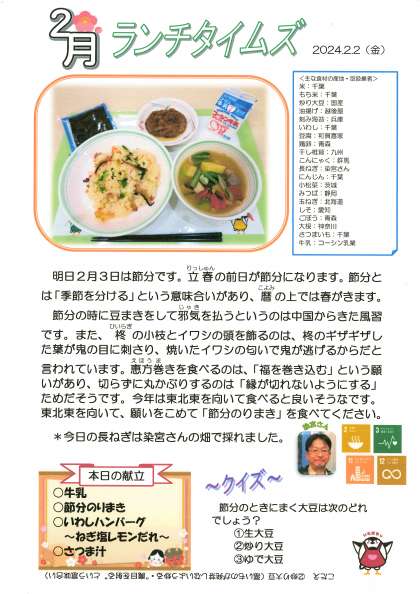 2月
ランチタイムズ
2024.2.2（金）
＜主な食材の産地・製造業者＞
米：千葉
もち米：千葉
炒り大豆：国産
油揚げ：越後屋
刻み海苔：兵庫
いわし：千葉
豆腐：和賀豊家
鶏卵：青森
干し椎茸：九州
こんにゃく：群馬
長ねぎ：染宮さん
にんじん：千葉
小松菜：茨城
みつば：静岡
玉ねぎ：北海道
しそ：愛知
ごぼう：青森
大根：神奈川
さつまいも：千葉
牛乳：コーシン乳業
明日２月３日は節分です。立春（りっしゅん）の前日が節分になります。節分と
は「季節を分ける」という意味合いがあり、暦（こよみ）の上では春がきます。
節分の時に豆まきをして邪気（じゃき）を払うというのは中国からきた風習
です。また、柊（ひいらぎ）の小枝とイワシの頭を飾るのは、柊のギザギザし
た葉が鬼の目に刺さり、焼いたイワシの匂いで鬼が逃げるからだと
言われています。恵方巻き（えほうま）を食べるのは、「福を巻き込む」という願
いがあり、切らずに丸かぶりするのは「縁が切れないようにする」
ためだそうです。今年は東北東を向いて食べると良いそうなです。
東北東を向いて、願いをこめて「節分のりまき」を食べてください。
＊今日の長ねぎは染宮さんの畑で採れました。
染宮さん
本日の献立
○牛乳
○節分のりまき
○いわしハンバーグ
～ねぎ塩レモンだれ～
○さつま汁
～クイズ～
節分のときにまく大豆は次のどれ
でしょう？
①生大豆
②炒り大豆
③ゆで大豆